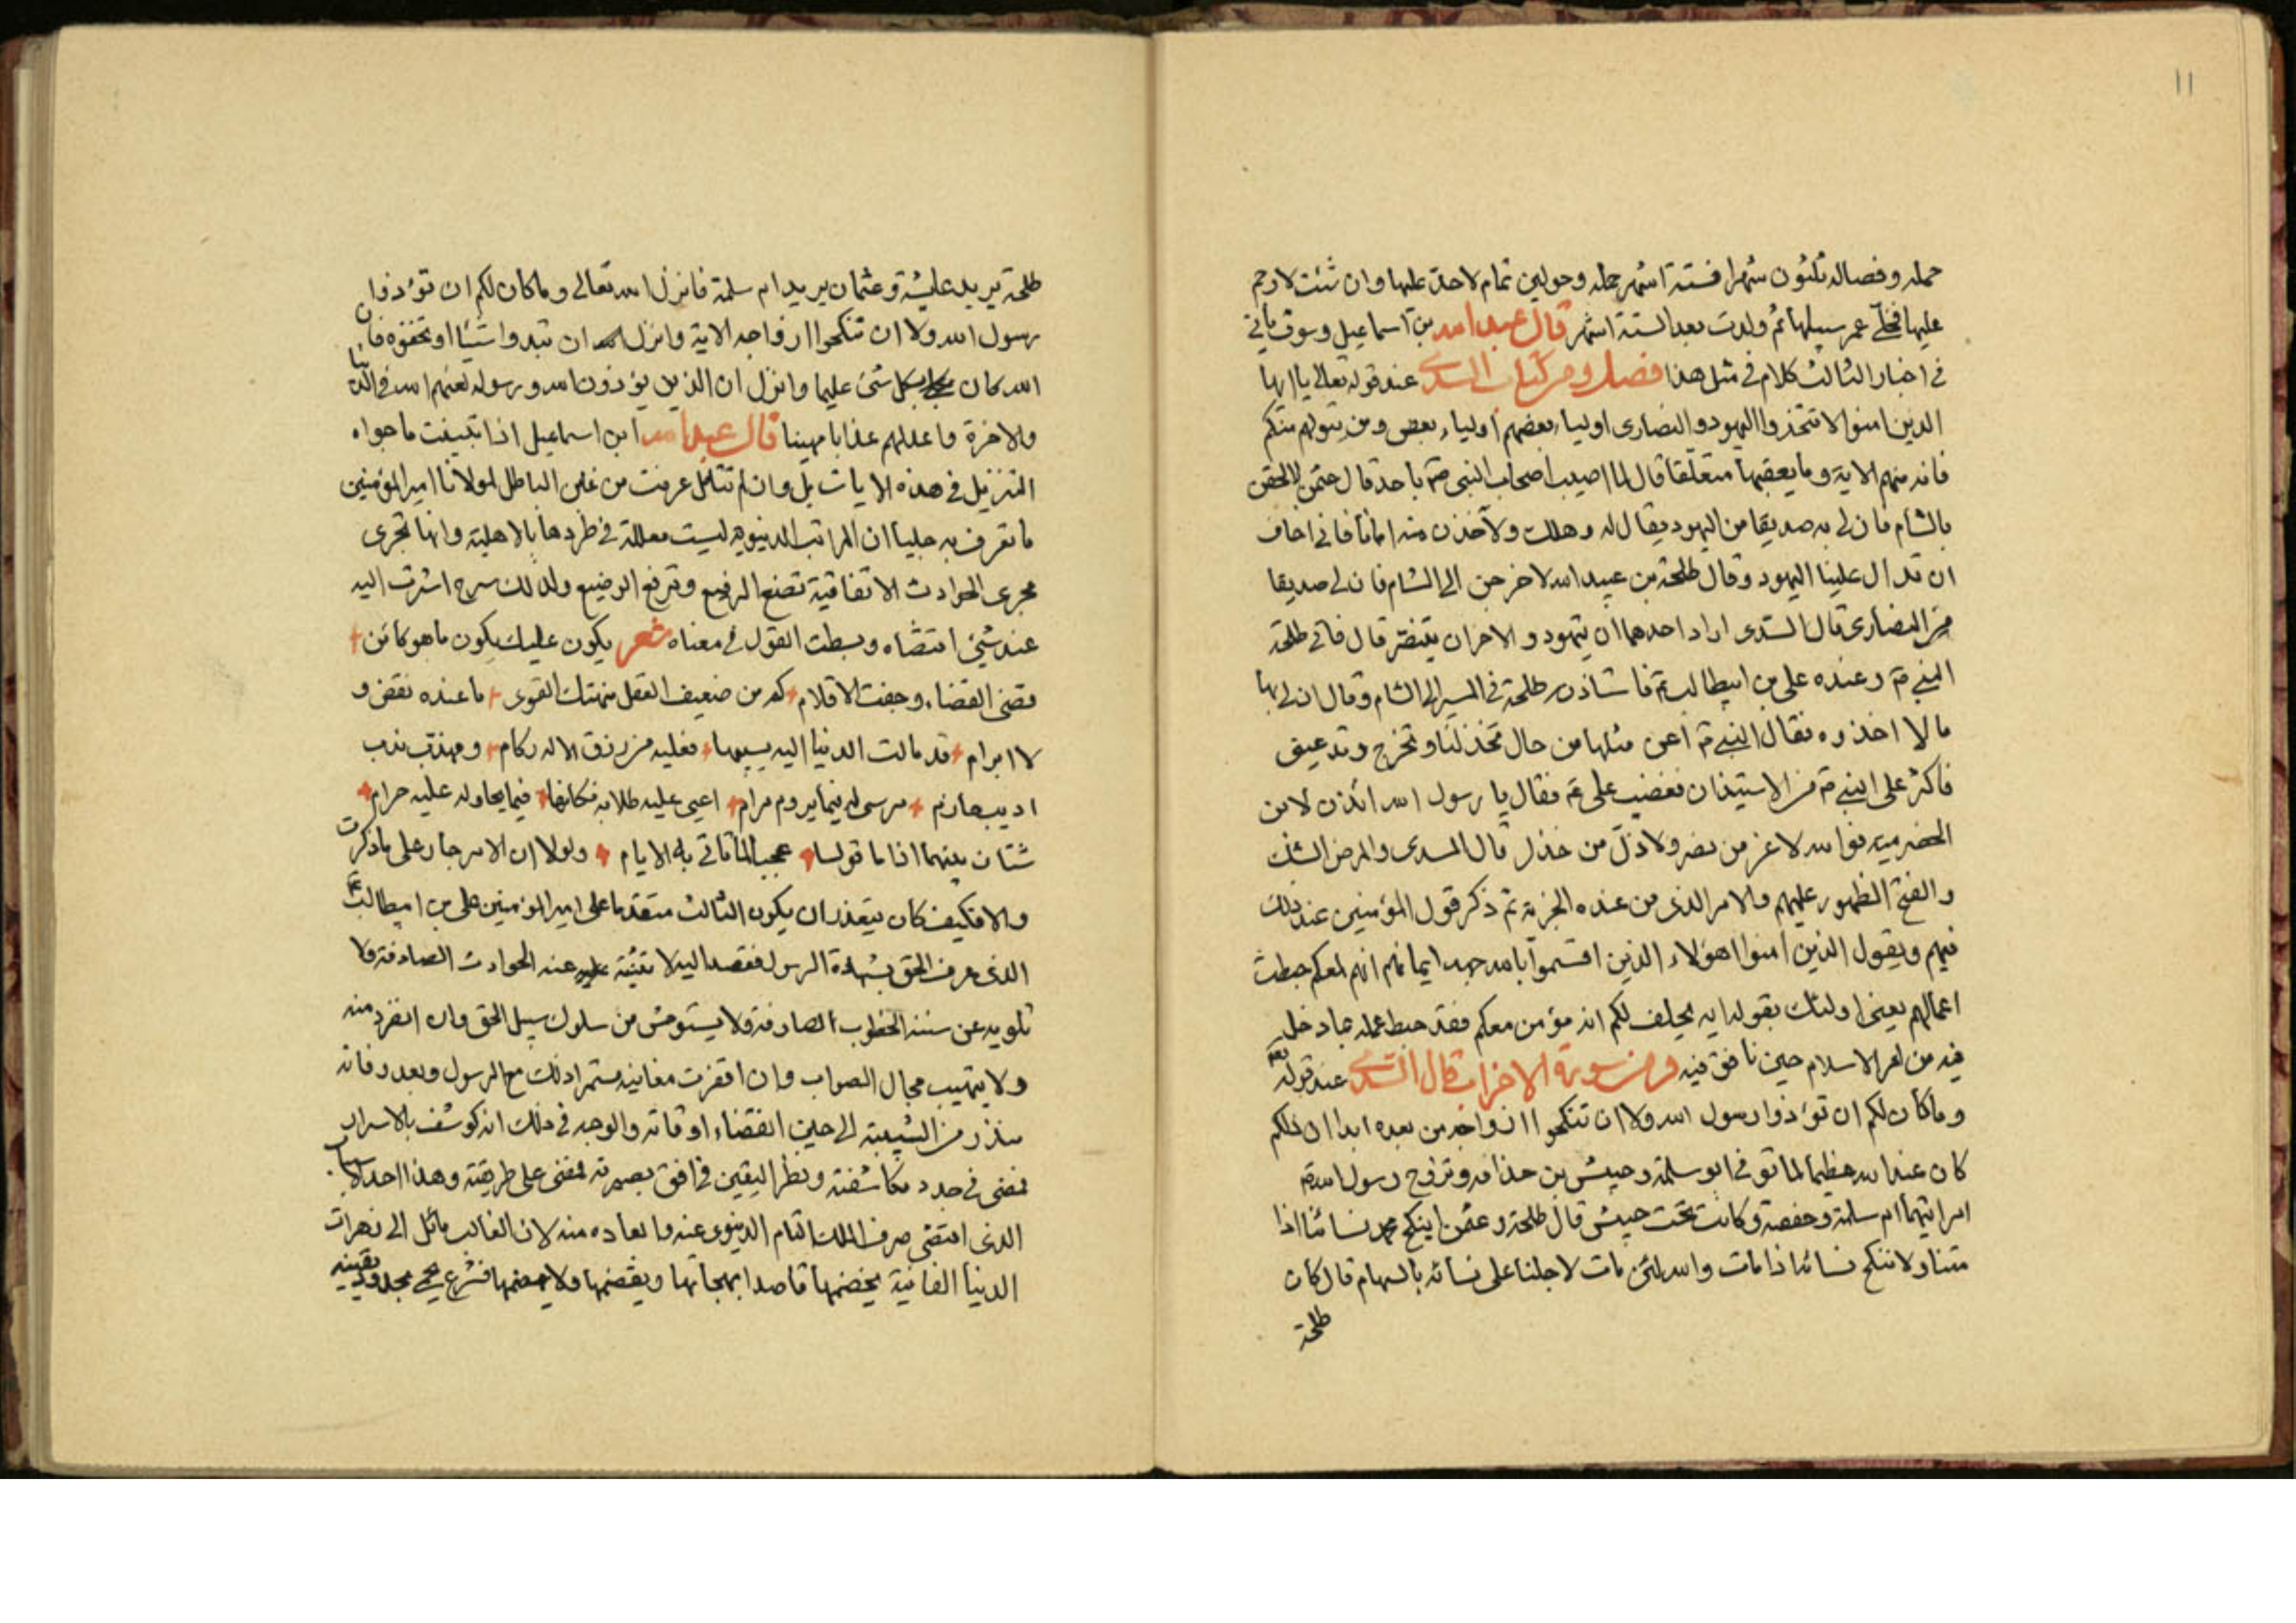 ١١
حمله وفصاله ثلثون شهرا فستة اشهر حمله وحولين تمام لا حد عليها وان شئت لا رجم
عليها فخلى عمر سبيلها ثم ولدت بعد الستة اشهر قال عبد الله بن اسماعيل وسوف ياتي
في اخبار الثالث كلام في مثل هذا فصل ومن كتاب السدى عند قوله تعالى يا ايها
الذين امنوا لا تتخذوا اليهود والنصارى اوليا بعضهم اولياء بعض ومن يتولهم منكم
فانه منهم الاية وما يعقبها متعلقا قال لما اصيب اصحاب النبي ص باحد قال عثمن لالحقن
بالشام فان لي به صديقا من اليهود يقال له دهلك ولآخذن منه امانا فاني اخاف
ان تدال علينا اليهود وقال طلحة بن عبيد الله لاخرجن الى الشام فان لي صديقا
من النصارى قال السدى اراد احدهما ان يتهود والاخر ان يتنصر قال فاتى طلحة
النبي ص وعنده علي بن ابيطالب ع فاستاذنه طلحة في المسير الى الشام وقال ان لي بها
مالا اخذ ره فقال النبي ص اعن مثلها من حال تخذلنا وتخرج وتدعنا
فاكثر على النبي ص من الاستيذان فغضب علي ع فقال يا رسول الله ائذن لابن
الحضرمية فوالله لا عز من نصر ولا ذل من خذل قال السدى والمرض الشك
والفتح الظهور عليهم والامر الذي من عنده الجزية ثم ذكر قول المؤمنين عند ذلك
فيهم ويقول الذين امنوا اهؤلاء الذين اقسموا بالله جهد ايمانهم انهم لمعكم حبطت
اعمالهم يعني اولئك بقوله انه يحلف لكم انه مؤمن معكم فقد حبط عمله بما دخل
فيه من امر الاسلام حين نافق فيه ومن سورة الاحزاب قال السدى عند قوله تعالى
وما كان لكم ان تؤذوا رسول الله ولا ان تنكحوا ازواجه من بعده ابدا ان ذلكم
كان عند الله عظيما لما توفي ابو سلمة وحبيش بن حذافة وتزوج رسول الله ص
امراتيهما ام سلمة وحفصة وكانت تحت حبيش قال طلحة وعثمن اينكح محمد نسائنا اذا
متنا ولا ننكح نسائه اذا مات والله لئن مات لاجلنا على نسائه بالسهام قال كان
طلحة
طلحة يريد عايشة وعثمان يريد ام سلمة فانزل الله تعالى وما كان لكم ان تؤذوا
رسول الله ولا ان تنكحوا ازواجه الاية وانزل ان تبدوا شيئا او تخفوه فان
الله كان بكل شئ عليما وانزل ان الذين يؤذون الله ورسوله لعنهم الله في الدنيا
والاخرة واعد لهم عذابا مهينا قال عبد الله ابن اسماعيل اذا تبينت ما حواه
التنزيل في هذه الايات بل وان لم تتامل عرفت من غلبن الباطل لمولانا امير المؤمنين
ما تعرف به جليا ان المراتب الدنيويه ليست معللة في طردها بالاهلية وانها تجرى
مجرى الحوادث الاتفاقية تضع الرفيع وترفع الوضيع ولذلك سرح اشرت اليه
عند شئ اقتضاه وبسطت القول في معناه شعر يكون عليك يكون ما هو كائن
وقضى القضاء وجفت الاقلام كم من ضعيف العقل منهتك القوى ما عنده نقض و
لا ابرام قد مالت الدنيا اليه بسيبها فعليه من رزق الاله ركام ومهذب ندب
اديب حازم مرسى له فيما يروم مرام اعيى عليه طلابه فكانما فيما يحاوله عليه حرام
شتان بينهما اذا ما قولسا عجبا لما تاتي به الايام ولولا ان الامر جار على ما ذكرت
والا فكيف كان يتعذر ان يكون الثالث متقدما على امير المؤمنين علي بن ابيطالب ع
الذي عرف الحق بشهادة الرسول فقصد اليه لا تثنيه عنه الحوادث الصادفة ولا
تلويه عن سننه الخطوب الصارفة ولا يستوحش من سلوك سبيل الحق وان انفرد منه
ولا يتهيب مجال الصواب وان اقفرت مغانيه مستمرا ذلك مع الرسول وبعد وفاته
منذ زمن الشبيبة الى حين انقضاء اوقاته والوجه في ذلك انه كوشف بالاسرار
فمضى في جدد مكاشفته ونظر اليقين في افق بصيرته فمضى على طريقته وهذا احد الاسباب
الذي اقتضى صرف الملك التام الدنيوى عنه وابعاده منه لان الغالب مائل الى زهرات
الدنيا الفانية يخضمها قاصدا بهجاتها ويقضمها ولا فشرع مجده ويقينه